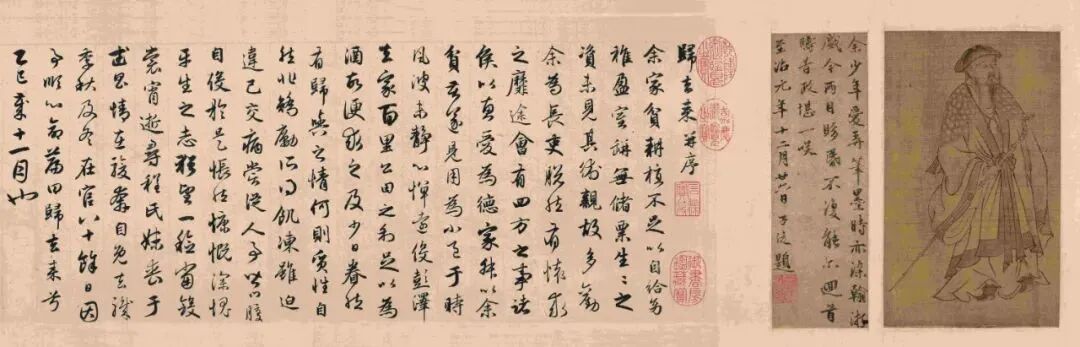 余少年愛弄筆墨時亦染翰游
戲今兩目眵濁不復能尔回首
疇昔政堪一唉
至治元年十二月廿六日子昂題
歸去來并序
余家貧耕植不足以自給幼
稚盈室缾無儲粟生生之
資未見其術親故多勸
余為長吏脫然有懷求
之靡途會有四方之事諸
侯以惠愛為德家叔以余
貧苦遂見用為小邑于時
風波未靜心憚遠役彭澤
去家百里公田之利足以為
酒故便求之及少日眷然
有歸與之情何則質性自
然非矯勵所得飢凍雖迫
違己交病嘗從人事皆口腹
自役於是悵然慷慨深愧
平生之志猶望一稔當斂
裳宵逝尋程氏妹喪于
武昌情在駿奔自免去職
季秋及冬在官八十餘日因
事順心命篇曰歸去來兮
乙巳歲十一月也